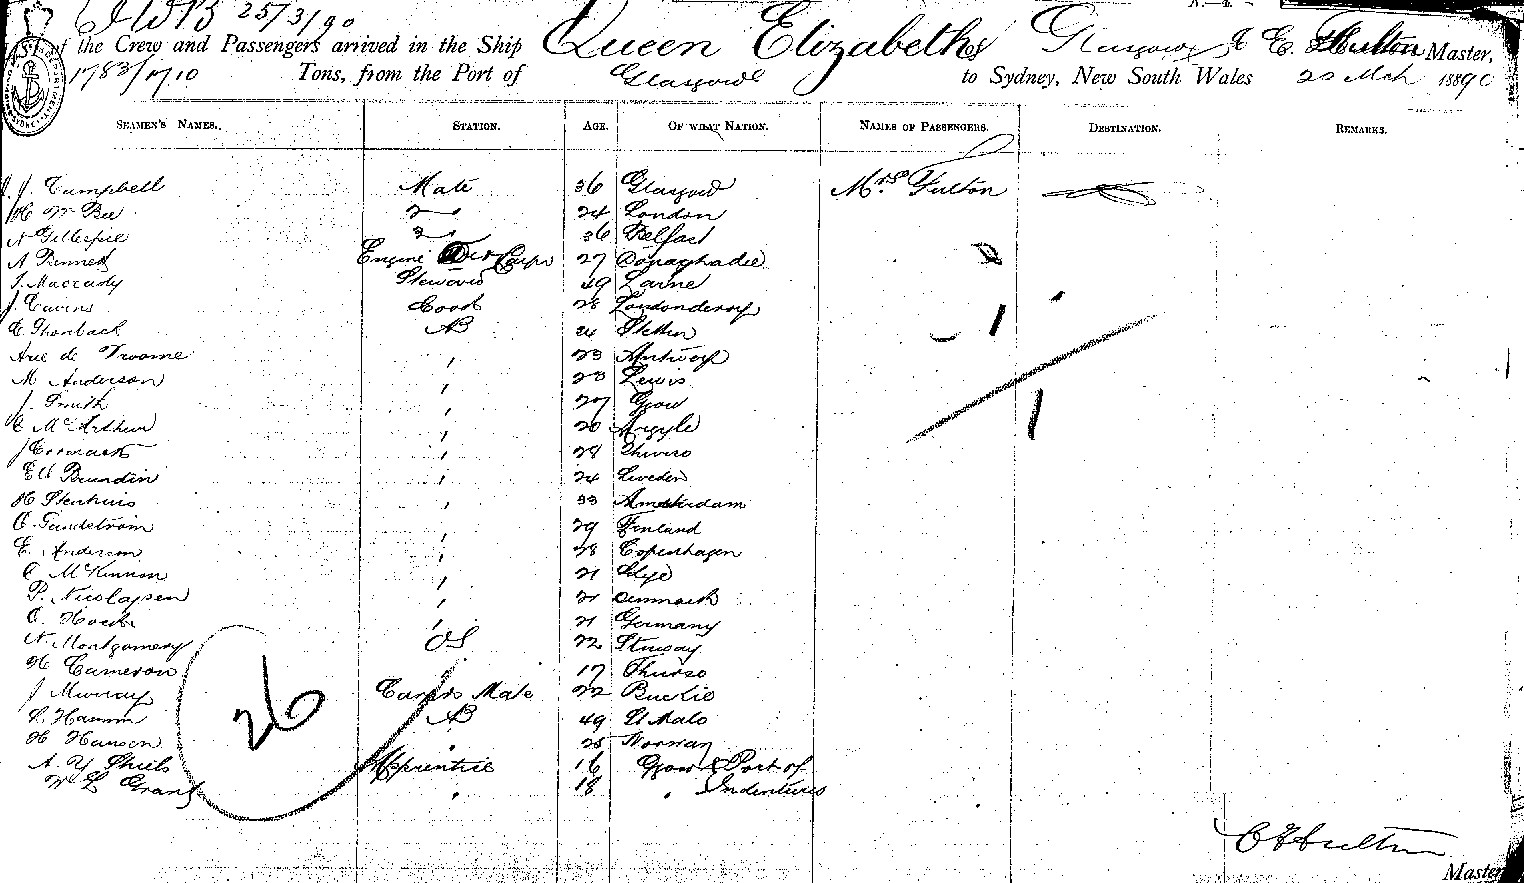 25/3/90
of the Crew and Passengers arrived in the Ship Queen Elizabeth of Glasgow C. E. Fulton Master,
1783/1710 Tons, from the Port of Glasgow to Sydney, New South Wales 22 Mch 1890
SEAMEN'S NAMES. STATION. AGE. OF WHAT NATION. NAMES OF PASSENGERS. DESTINATION. REMARKS.
J. Campbell Mate 36 Glasgow Mrs Fulton
H W Bee 2 " 24 London
N Gillespie 3 " 36 Belfast
A Bennett Engine Carpr 27 Donaghadee
Macrady Steward 49 Larne
J. Cook 28 Londonderry
AB 24 Stettin
Arie de Vroome " 23 Antwerp
M Anderson " 23 Lewis
J. Smith " 27 Gow
C McArthur " 20 Argyle
J Cormack " 28 Thurso
Brundin " 24 Sweden
H Stenhuis " 33 Amsterdam
C. Sundstrom " 29 Finland
E. Anderson " 28 Copenhagen
C McKinnon " 21 Skye
P. Nicolaysen " 21 Denmark
C. " 21 Germany
N. Montgomery OS 22 Stornoway
H Cameron 17 Thurso
J Murray Carprs Mate 22 Buckie
AB 49 St Malo
H Hansen " 25 Norway
A. Y Shiels Apprentice 16 Gow & Port of
W L Grant " 18 " Indentures
26
1
1
C E Fulton
Master